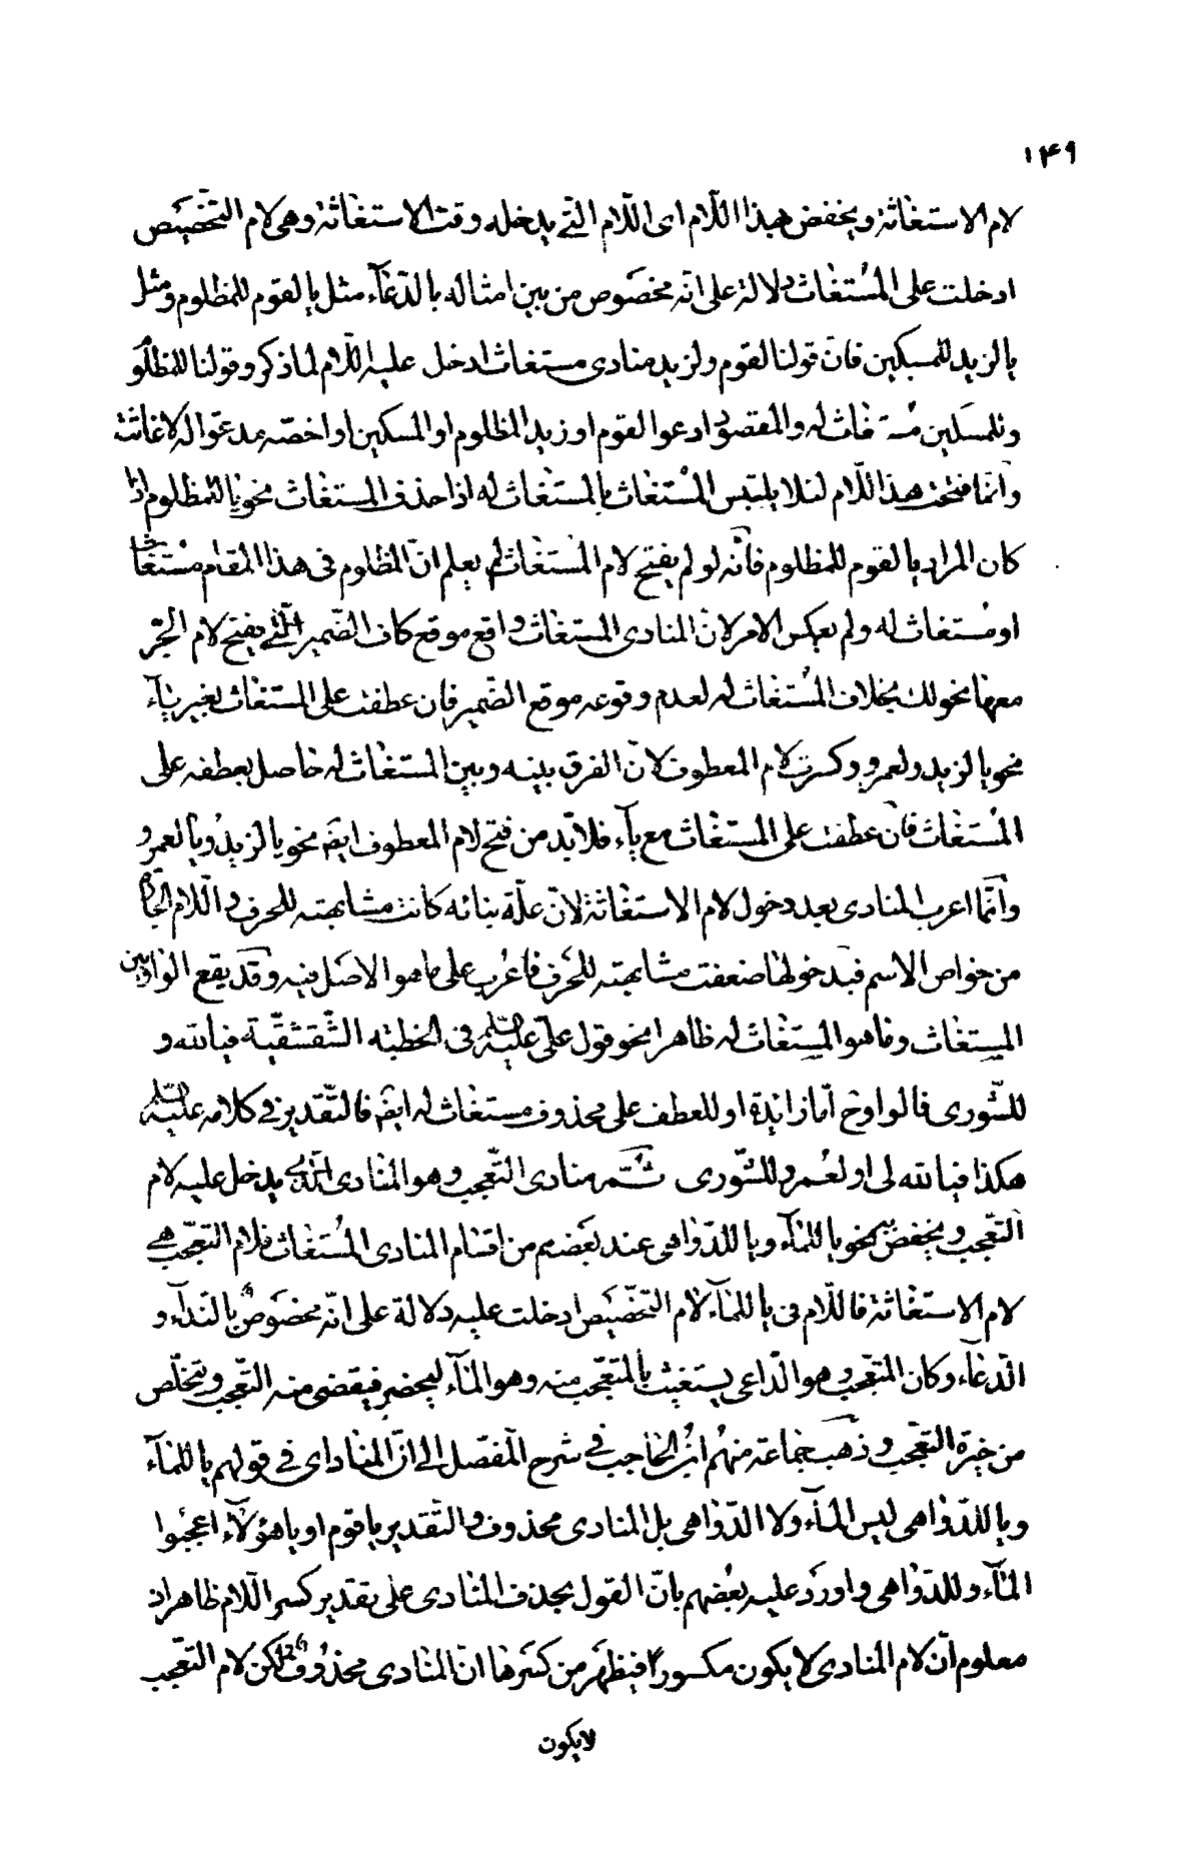 ۱۴۹
لام الاستغاثة ويخفض بهذا اللّام اى اللّام الّتى يدخله وقت الاستغاثة وهى لام التّخصيص
ادخلت على المُستغاث دلالة على انّه مخصوص من بين امثاله بالدّعآء مثل يا لقوم للمظلوم ومثل
يا لزيد للمسكين فانّ قولنا لقوم ولزيد منادى مستغاث ادخل عليه اللّام لما ذكر وقولنا للمظلو
وللمسكين مستغاث له والمقصود ادعوا لقوم او زيد المظلوم او المسكين او اخصّه مدعوا له لاغاثته
وانّما فتحت هذا اللّام لئلا يلتبس المُستغاث بالمستغاث له اذا حذف المستغاث نحو يا للمظلوم اذا
كان المراد يا لقوم للمظلوم فانّه لو لم يفتح لام المُستغاث لم يعلم انّ المظلوم فى هذا المقام مُستغاث
او مُستغاث له ولم يعكس الامر لانّ المنادى المستغاث واقع موقع كاف الضّمير الّتى يفتح لام الجرّ
معها نحو لك بخلاف المُستغاث له لعدم وقوعه موقع الضّمير فان عطفت على المستغاث بغير ياء
نحو يا لزيد ولعمرو وكسرت لام المعطوف لانّ الفرق بينه وبين المستغاث له حاصل بعطفه على
المُستغاث فان عطفت على المستغاث مع يآء فلا بدّ من فتح لام المعطوف ايضَ نحو يا لزيد ويا لعمرو
وانّما اعرب المنادى بعد دخول لام الاستغاثة لانّ علّة بنائه كانت مشابهته للحرف واللّام الجارّة
من خواص الاسم فبدخولها ضعفت مشابهته للحرف فاعرب على ما هو الاصل فيه وقد يقع الواو بين
المستغاث وما هو المستغاث له ظاهرا نحو قول علىّ عليه السّلم فى الخطبة الشّقشقيّة فيالله و
للشّورى فالواوح امّا زائدة او للعطف على محذوف مستغاث له ايضَ فالتّقدير فى كلامه عليه السّلم
هكذا فيالله لى او لعُمر وللشّورى ثُمّ منادى التّعجب وهو المنادى الّذى يدخل عليه لام
التّعجب ويخفض به نحو يا للمآء ويا للدّواهى عند بعضهم من اقسام المنادى المُستغاث فلام التعجّب هى
لام الاستغاثة فاللّام فى يا للمآء لام التّخصيص ادخلت عليه دلالة على انّه مخصوص بالنّدآء و
الدّعآء وكان المتعجّب وهو الدّاعى يستغيث بالمتعجّب منه وهو المآء ليحضر فيقضى منه التّعجب ويتخلّص
من حيرة التّعجب وذهب جماعة منهم ابن الحاجب فى شرح المفصّل الى انّ المنادى فى قولهم يا للمآء
ويا للدّواهى ليس المآء ولا الدّواهى بل المنادى محذوف والتّقدير يا قوم او يا هؤلآء اعجبوا
المآء وللدّواهى واورد عليه بعضهم بانّ القول بحذف المنادى على تقدير كسر اللّام ظاهر اذ
معلوم انّ لام المنادى لا يكون مكسورا فيظهر من كسرها انّ المنادى محذوف لكن لام التّعجب
لا يكون